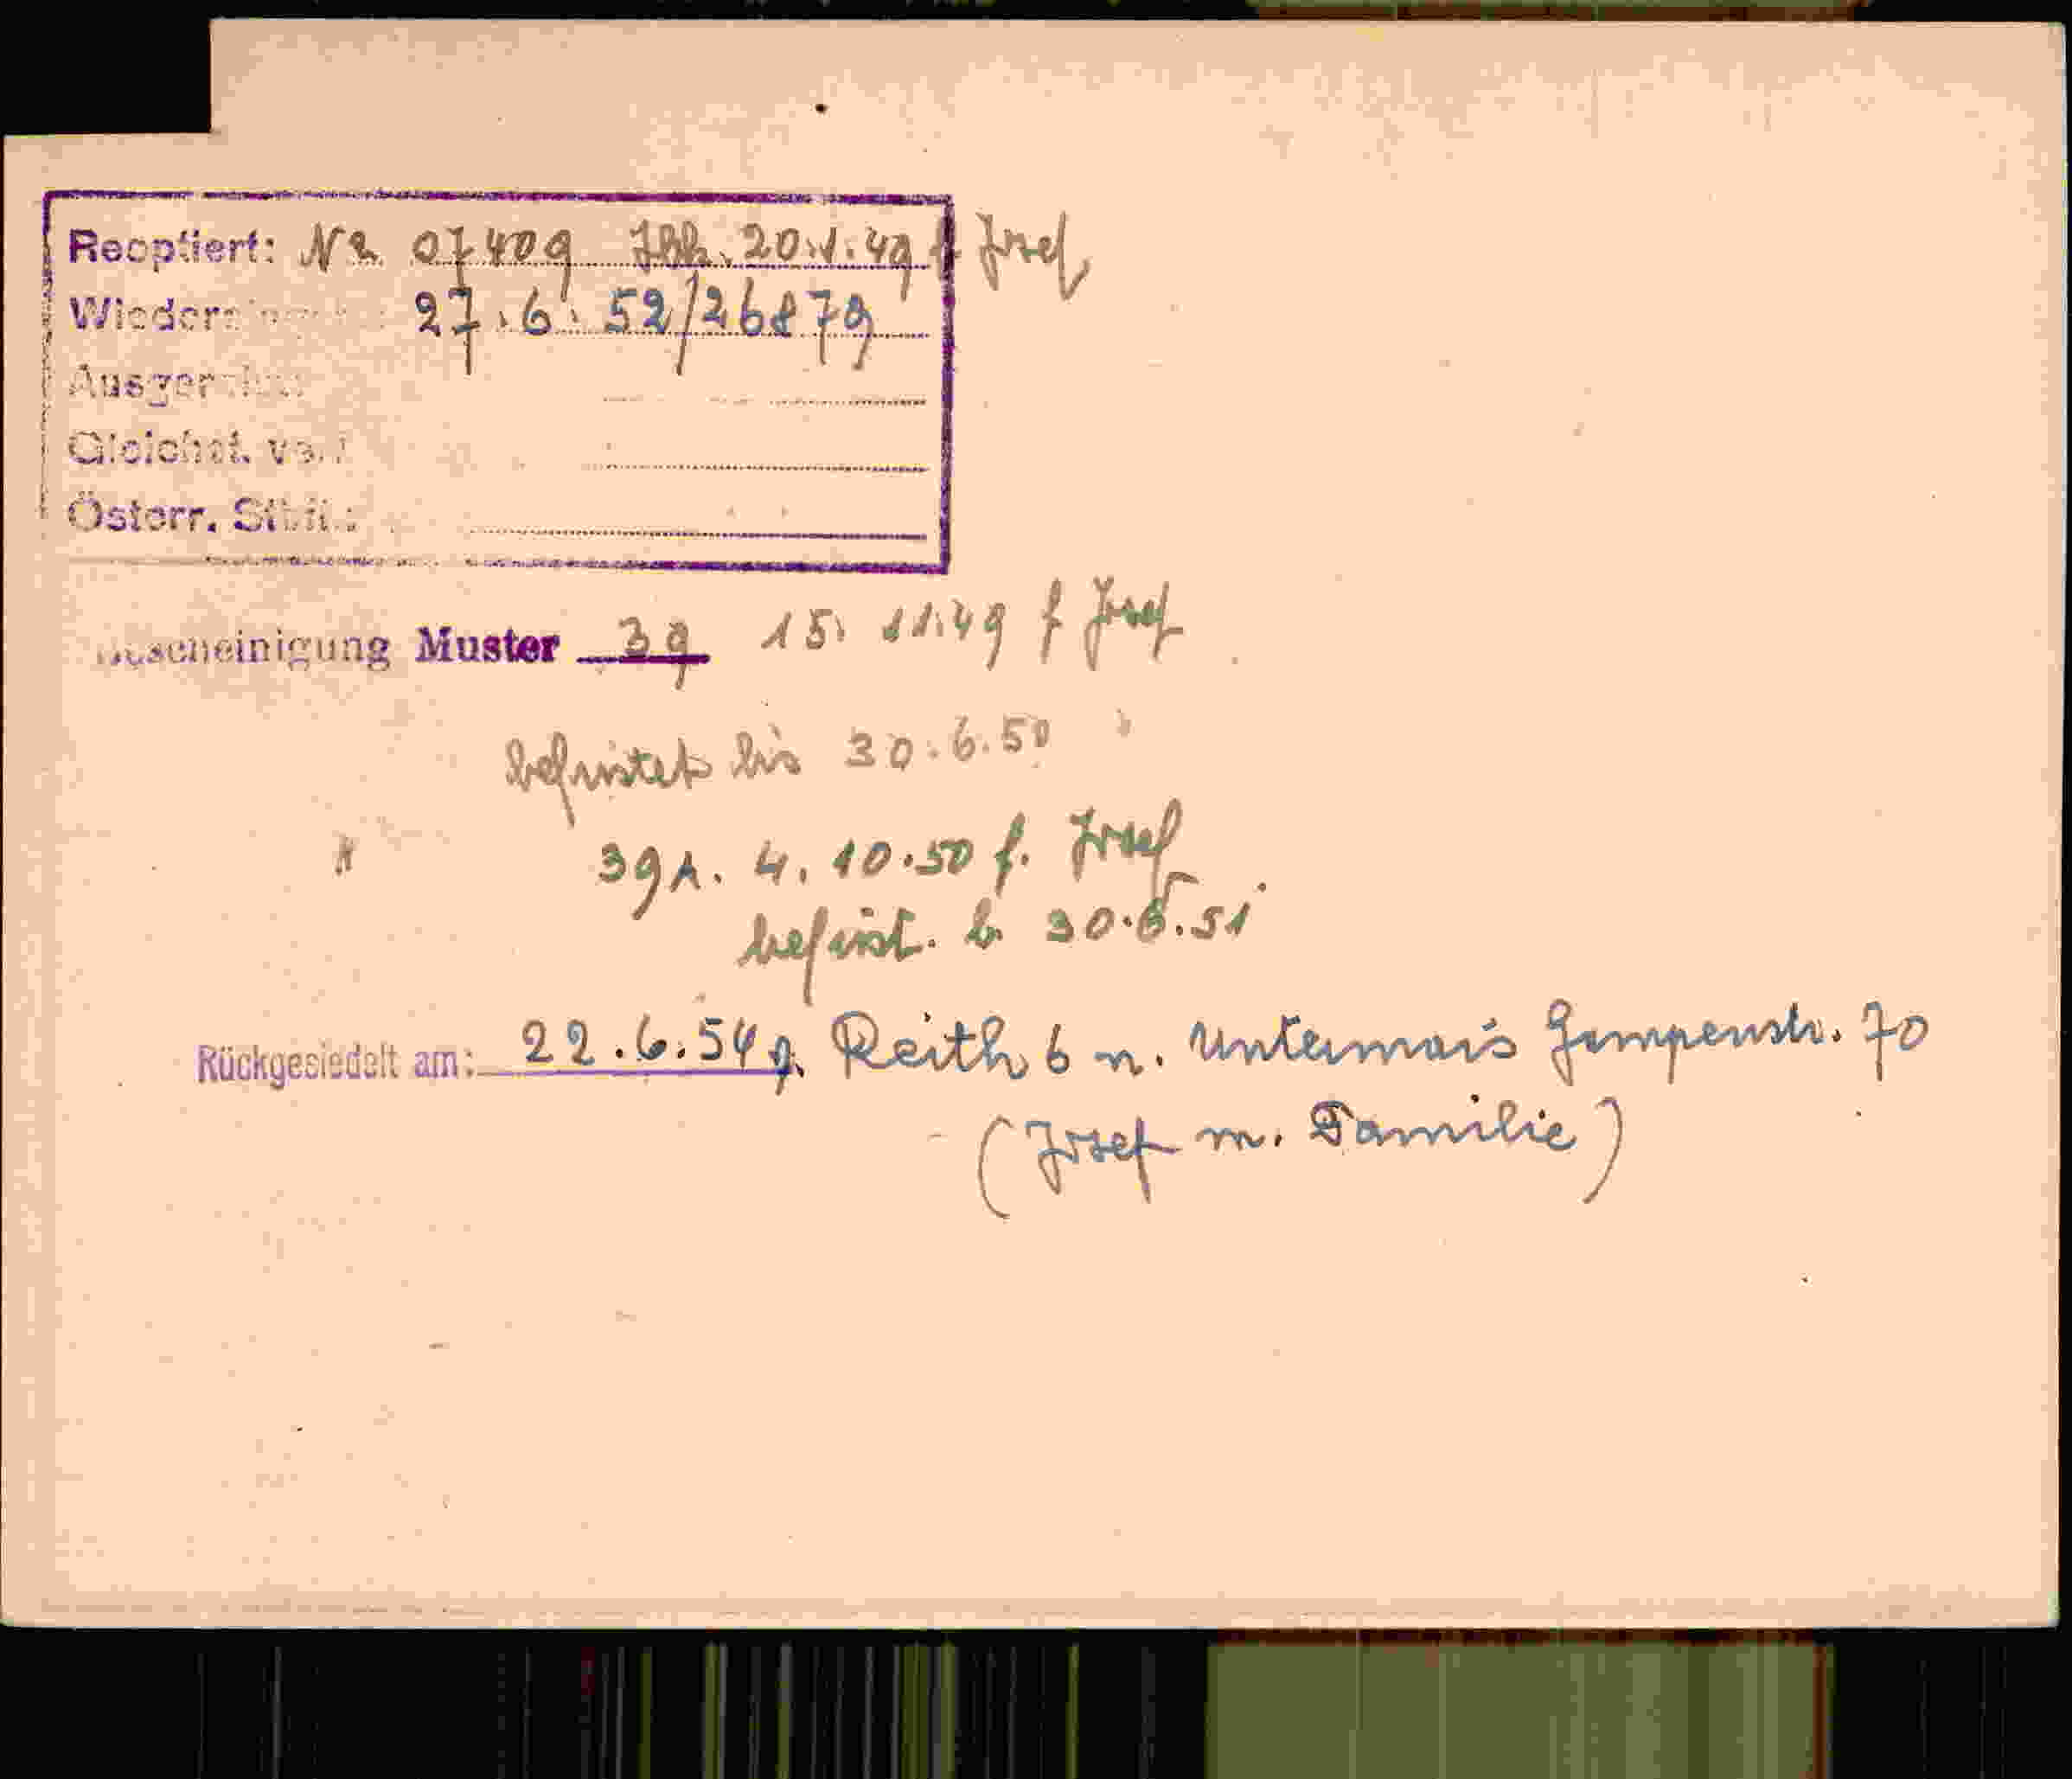 Reoptiert: Nr 07409 Ibk. 20.1.49 f Josef
27.6.52/26879
Gleichst.
Österr.
Bescheinigung Muster 39 15. 11.49 f Josef
befristet bis 30.6.50
39A. 4. 10.50 f. Josef
befrist. b. 30.6.51
Rückgesiedelt am: 22.6.54 v. Reith 6 n. Untermais Gampenstr. 70
(Josef m. Familie)